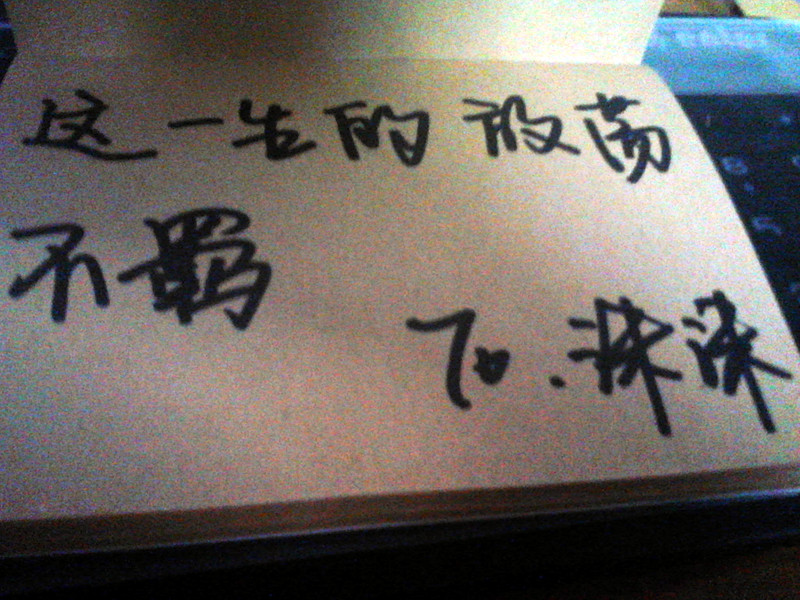 这一生的放荡
不羁
To.沫沫